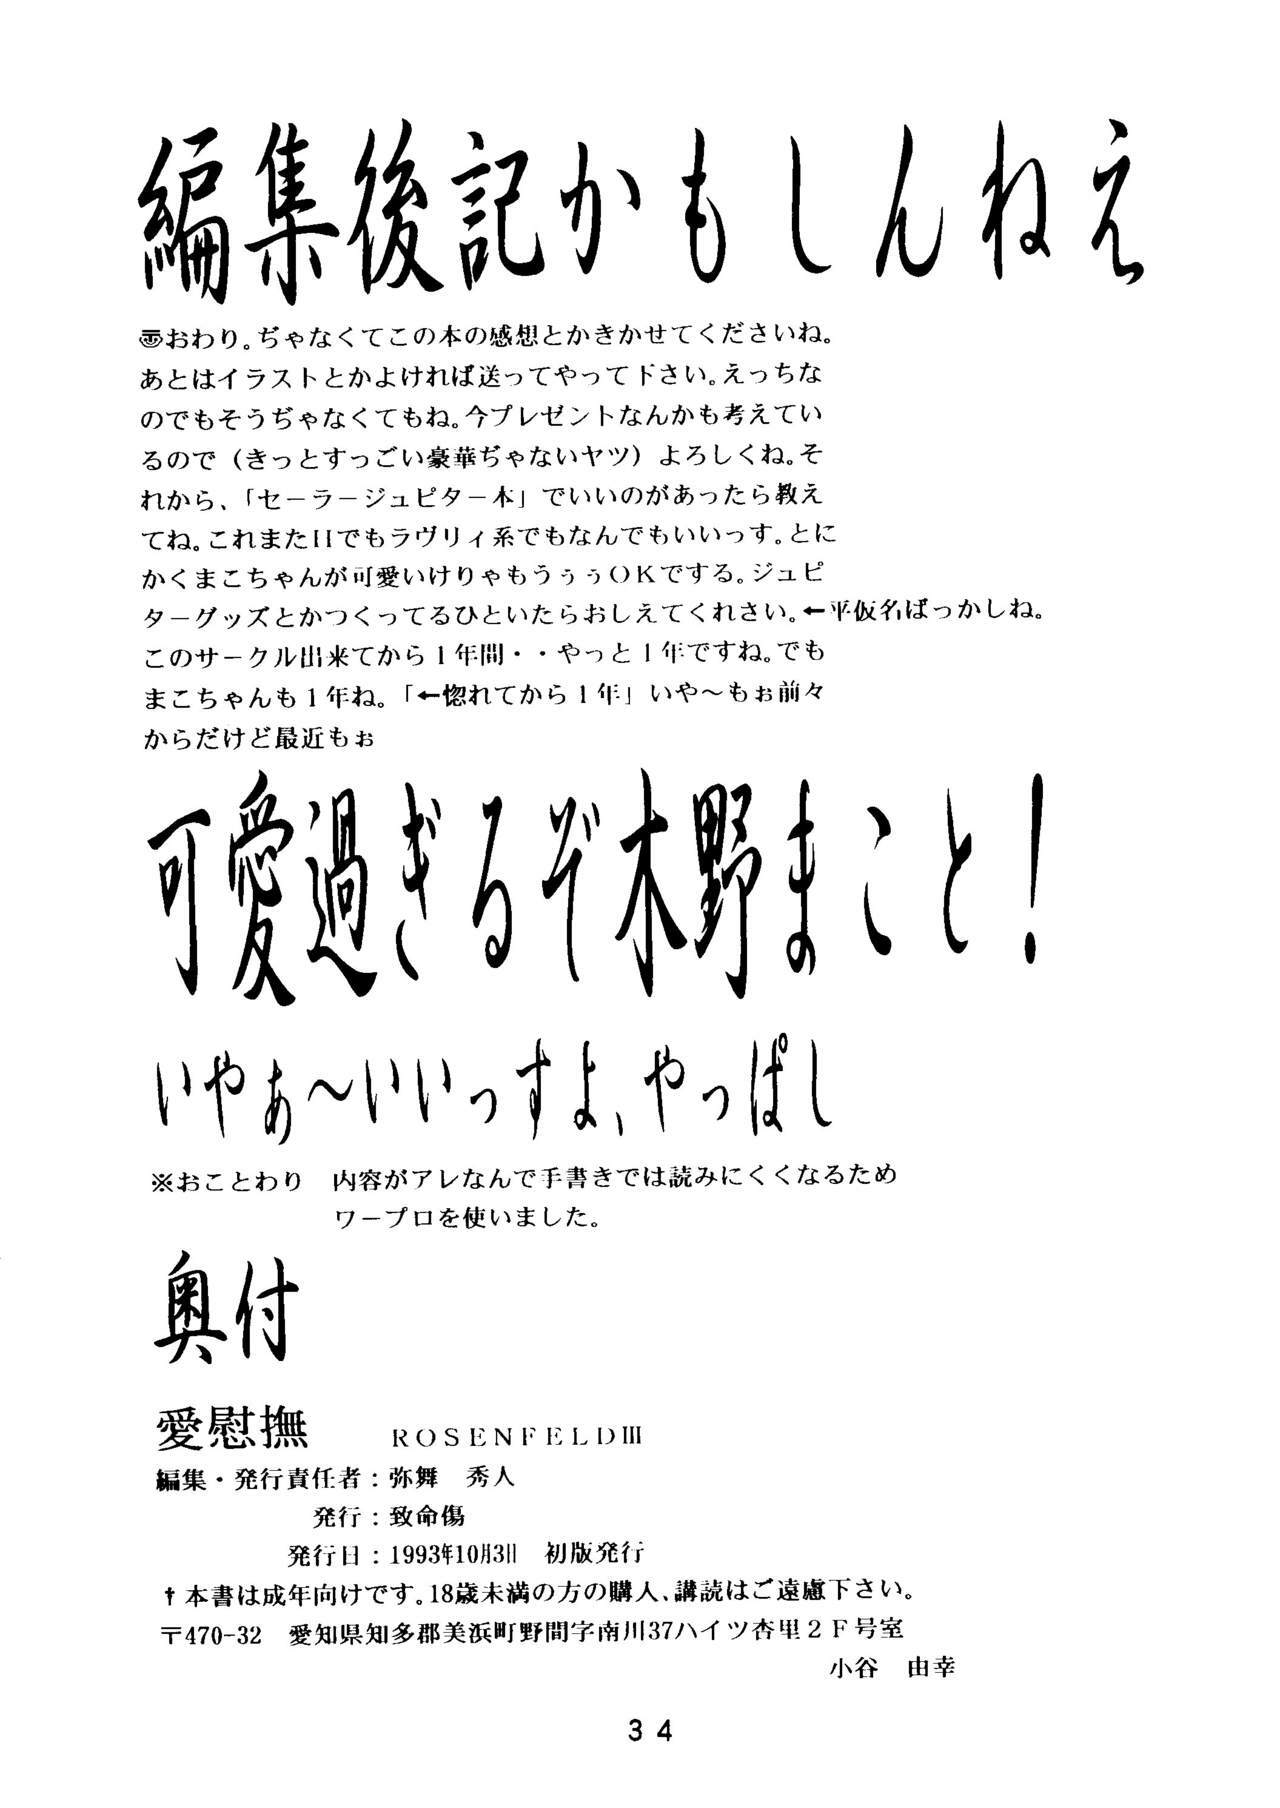 編集後記かもしんねえ
おわり。ぢゃなくてこの本の感想とかきかせてくださいね。
あとはイラストとかよければ送ってやって下さい。えっちな
のでもそうぢゃなくてもね。今プレゼントなんかも考えてい
るので（きっとすっごい豪華ぢゃないヤツ）よろしくね。そ
れから、「セーラージュピター本」でいいのがあったら教え
てね。これまたHでもラヴリィ系でもなんでもいいっす。とに
かくまこちゃんが可愛いけりゃもうぅぅOKでする。ジュピ
ターグッズとかつくってるひといたらおしえてくれさい。←平仮名ばっかしね。
このサークル出来てから1年間・・やっと1年ですね。でも
まこちゃんも1年ね。「←惚れてから1年」いや～もぉ前々
からだけど最近もぉ
可愛過ぎるぞ木野まこと！
いやぁ～いいっすよ、やっぱし
※おことわり　内容がアレなんで手書きでは読みにくくなるため
ワープロを使いました。
奥付
愛慰撫　ROSENFELDⅢ
編集・発行責任者：弥舞　秀人
発行：致命傷
発行日：1993年10月3日　初版発行
†本書は成年向けです。18歳未満の方の購入、講読はご遠慮下さい。
〒470-32　愛知県知多郡美浜町野間字南川37ハイツ杏里２Ｆ号室
小谷　由幸
34